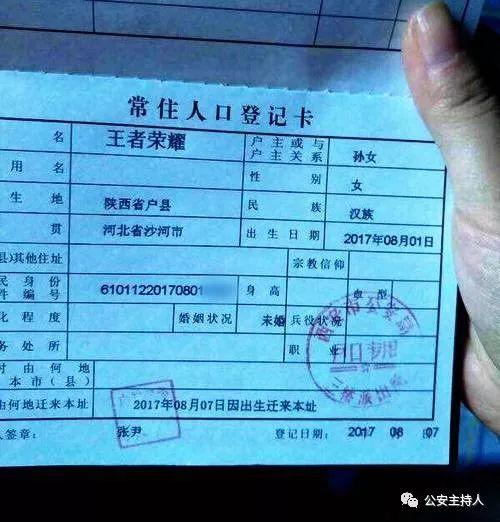 常住人口登记卡
名 王者荣耀 户主或与户主关系 孙女
用名 性别 女
生地 陕西省户县 民族 汉族
贯 河北省沙河市 出生日期 2017年08月01日
县)其他住址 宗教信仰
民身份件编号 61011220170801 身高 血型
化程度 婚姻状况 未婚 兵役状况
务处所 职业
时由何地
本市(县)
由何地迁来本址 2017年08月07日因出生迁来本址
人签章: 张尹 登记日期: 2017 08 07
户口专用
派出所
公安主持人